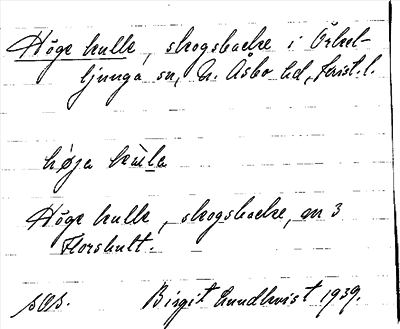 Höge kulle, skogsbacke i Örkel-
ljunga sn, N. Åsbo hd, Krist. l.
høja kùla
Höge kulle, skogsbacke, en 3
Florshult.
sOs. Birgit Lundkvist 1939.